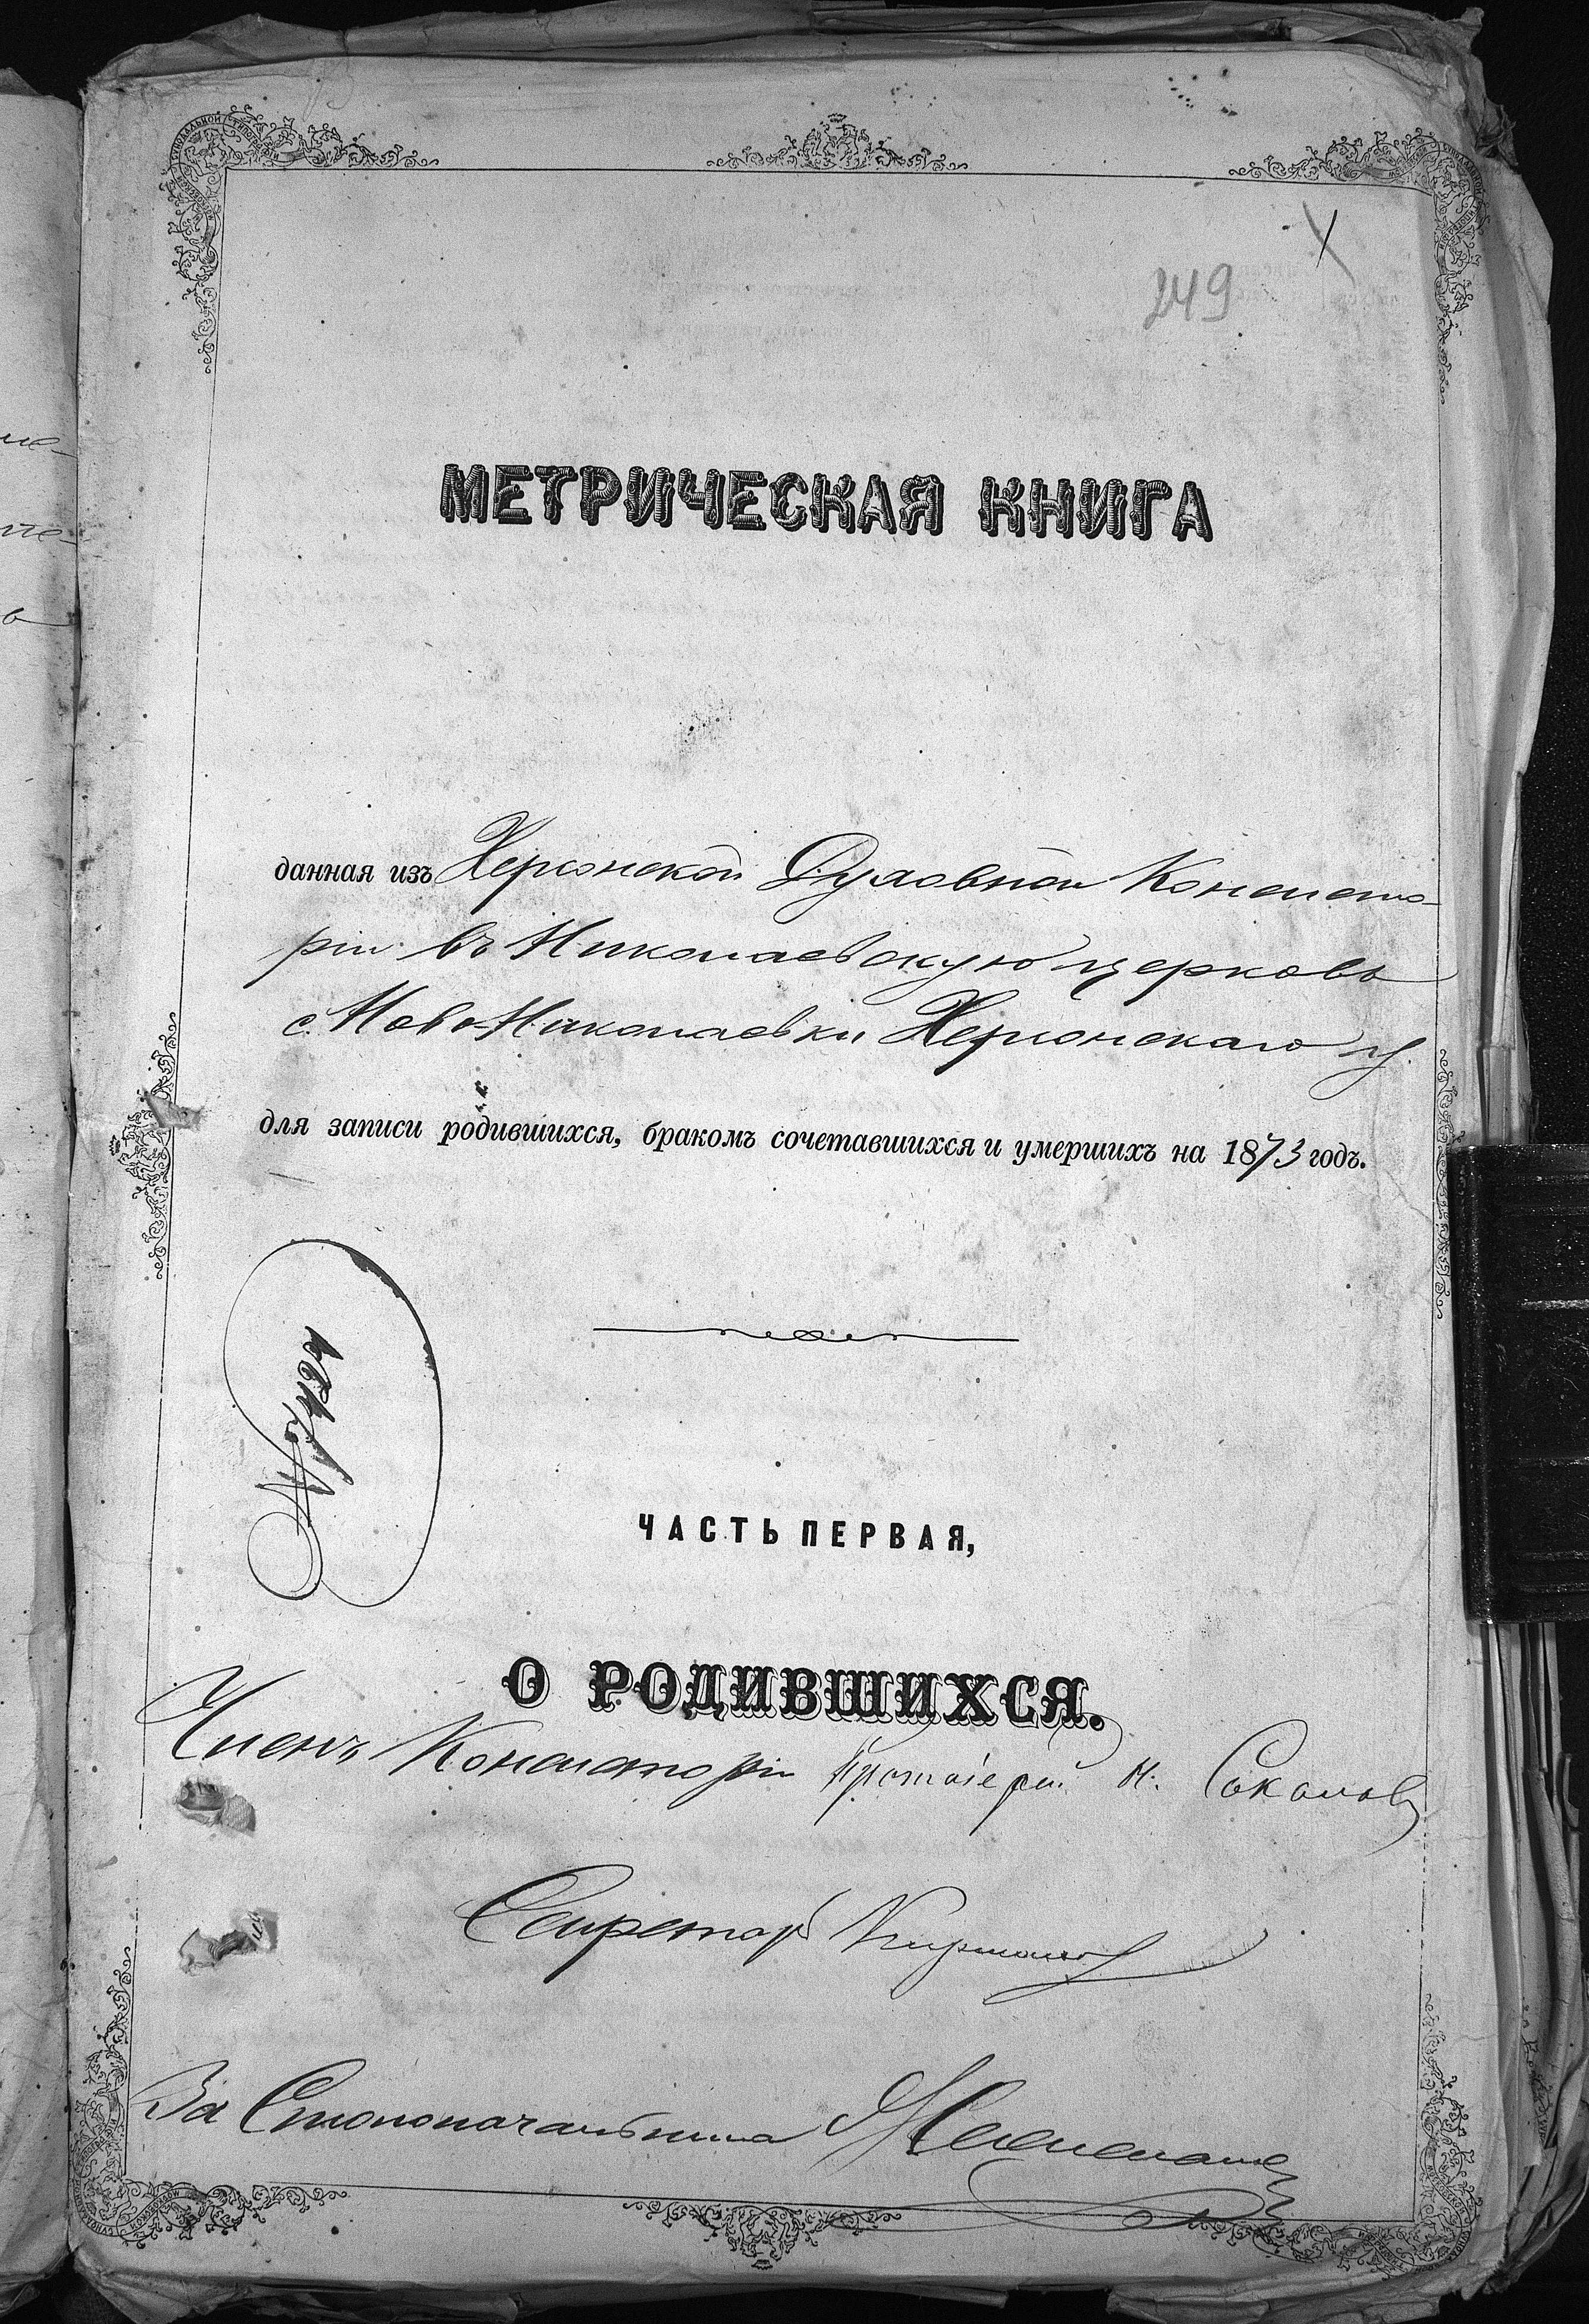 249
МЕТРИЧЕСКАЯ КНИГА
данная изъ Херсонской Духовной Консисто-
ріи въ Николаевскую церковь
с. Ново-Николаевки Херсонскаго у.
для записи родившихся, бракомъ сочетавшихся и умершихъ на 1873 годъ.
ЧАСТЬ ПЕРВАЯ,
О РОДИВШИХСЯ.
Членъ Консисторіи Протоіерей Н. Соколовъ
Секретарь
За Столоначальника